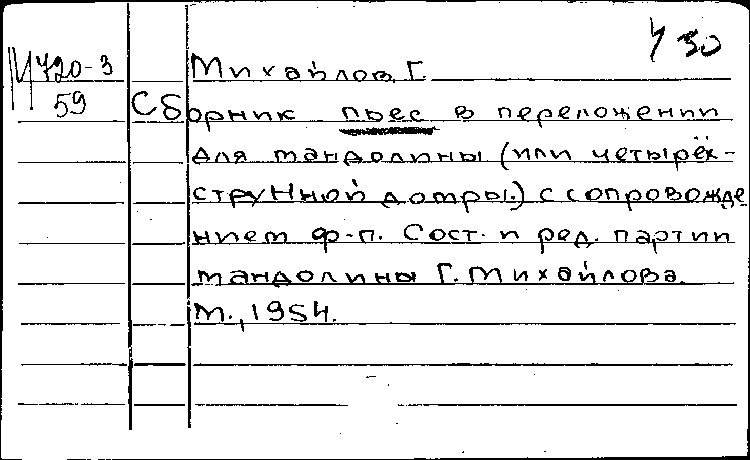 У 30
М 720-3
59
Михайлов, Г.
Сборник пьес в переложении
для мандолины (или четырёх-
струнной домры.) с сопровожде
нием ф-п. Сост. и ред. партии
мандолины Г. Михайлова.
М., 1954.